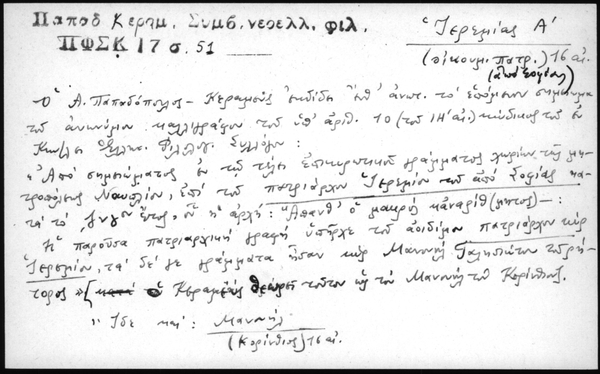 Παπαδ Κεραμ. Συμβ. νεοελλ. φιλ.
ΠΦΣΚ 17 σ. 51
Ἱερεμίας Α'
(οἰκουμ. πατρ.) 16 αἰ.
(ἀπό Σοφίας)
Ὁ Ἀ. Παπαδόπουλος - Κεραμεύς ἐκδίδει ἐνθ' ἀνωτ. τό ἑπόμενον σημείωμα
τοῦ ἀνωνύμου καλλιγράφου τοῦ ὑπ' ἀριθ. 10 (τοῦ ΙΗ' αἰ.) κώδικος τοῦ ἐν
Κων/λει Ἑλλην. Φιλολογ. Συλλόγου:
"Ἀπό σημειώματος ἐν τῷ τέλει ἐπικυρωτικοῦ γράμματος χωρίων τῆς μη-
τροπόλεως Ναυπλίου, ἐπί τοῦ πατριάρχου Ἱερεμίου τοῦ ἀπό Σοφίας κα-
τά τό ἔτος, οὗ ἡ ἀρχή: "Ἅπανθ' ὁ μακρός κἀναρίθ(μητος) —:
Ἡ παροῦσα πατριαρχική γραφή ὑπῆρχε τοῦ ἀοιδίμου πατριάρχου κύρ
Ἱερεμίου, τά δέ γε γράμματα ἦσαν κύρ Μανουήλ Γαλησιώτου τοῦ ῥή-
τορος » [ ὁ Κεραμεύς θεωρεῖ τοῦτον ὡς τόν Μανουήλ τοῦ Κορίνθιος.
" Ἰδέ καί: Μανουήλ
(Κορίνθιος) 16 αἰ.